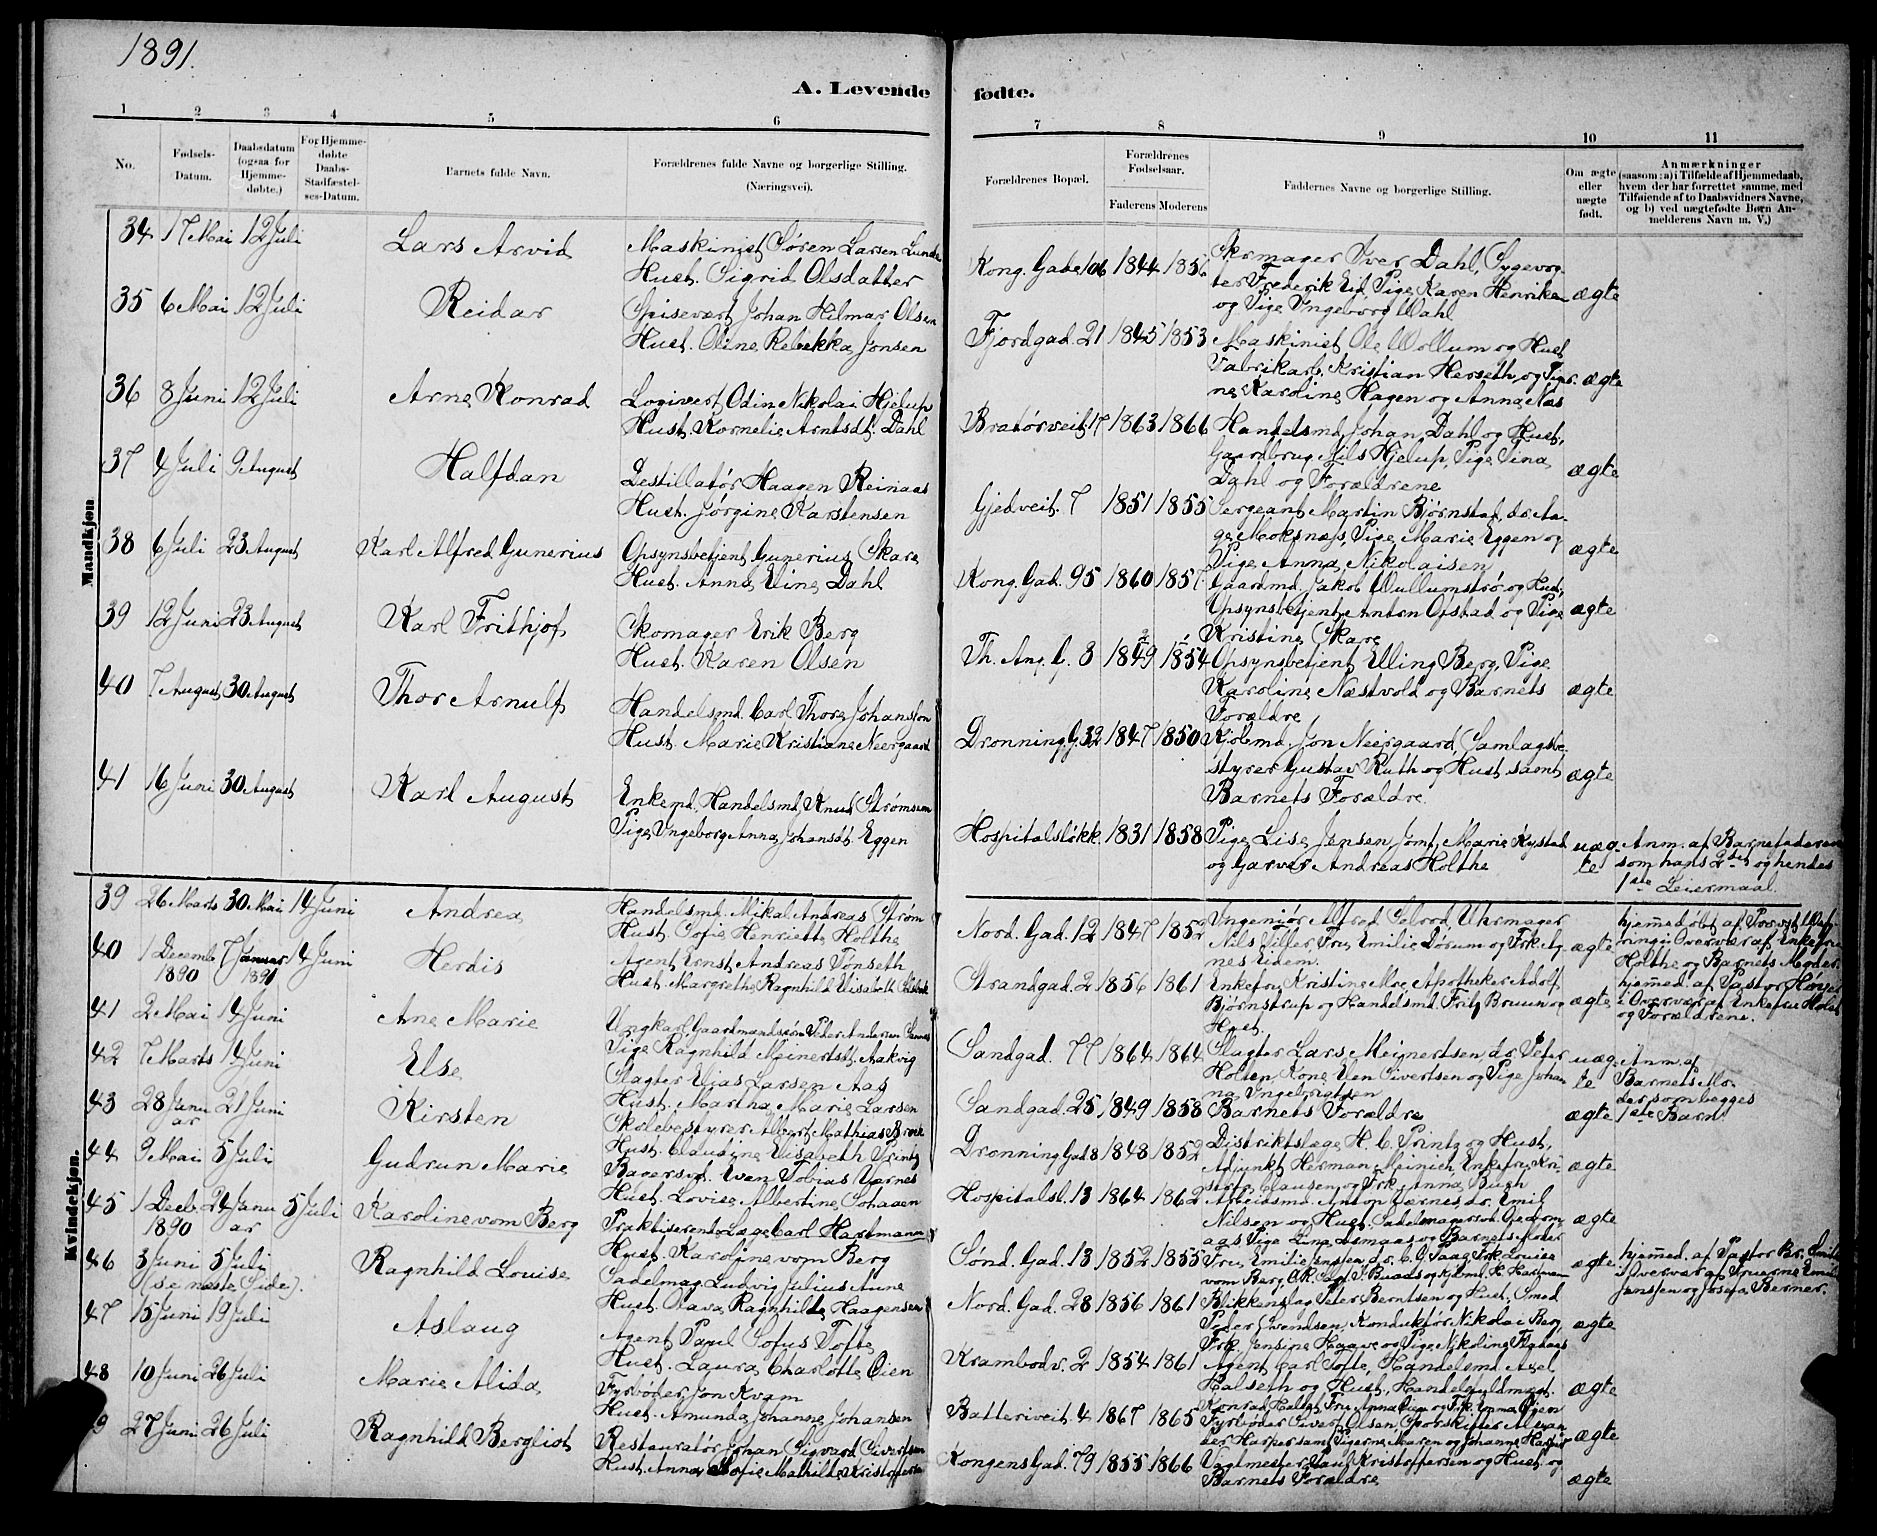 1891.
A. Levende fødte.
1 2 3 4 5 6 7 8 9 10 11
No.
Fødsels-Datum.
Daabsdatum (ogsaa for Hjemme-døbte.)
For Hjemme-døbte Daabs-Stadfæstel-ses-Datum.
Barnets fulde Navn.
Forældrenes fulde Navne og borgerlige Stilling. (Næringsvei).
Forældrenes Bopæl.
Forældrenes Fødselsaar.
Faderens Moderens
Faddernes Navne og borgerlige Stilling.
Om ægte eller uægte født.
Anmærkninger (saasom: a) i Tilfælde af Hjemmedaab, hvem der har forrettet samme, med Tilføiende af to Daabsvidners Navne, og b) ved uægtefødte Børn An-melderens Navn m. V.)
Mandkjøn
34 17 Mai 12 Juli Lars Arvid Maskinist Søren Larsen Lunde
Hust. Sigrid Olsdatter
Kong. Gade 106 1844 1856 Skomager Iver Dahl, Sygevog-
ter Frederik Eid, Pige Karen Henriksen ægte
og Pige Ingeborg Dahl
35 6 Mai 12 Juli Reidar Spisevært Johan Hilmar Olsen
Hust. Oline Rebekka Jonsen
Fjordgad. 21 1845 1853 Maskinist Ole Wollum og Hust
Fabrikarb. Kristian Herseth, og Pige. ægte
ne Karoline Hagen og Anna Næs
36 8 Juni 12 Juli Arne Konrad Logivert Odin Nikolai Hjelup
Hust. Kornelie Arntsdt. Dahl
Bratørveit. 17 1863 1866 Handelsmd. Johan Dahl og Hust,
Gaardbrug. Nils Hjelup, Pige Sina
Dahl og Forældrene ægte
37 4 Juli 9 August Halfdan Destillatør Haagen Reinaas
Hust. Jørgine Karstensen
Gjedveit. 7 1851 1855 Sergeant Martin Bjørnstad, do. Aa-
ge Moksnæss, Pige Marie Eggen og
Pige Anna Nikolaisen ægte
38 6 Juli 23 August Karl Alfred Gunerius Opsynsbetjent Gunerius Skare
Hust. Anna Eline Dahl
Kong. Gad. 95 1860 1857 Gaardmd. Jakob Wullumstrø og Hust,
Opsynsbetjent Anton Opstad og Pige
Kristine Skare ægte
39 12 Juni 23 August Karl Frithjof Skomager Erik Berg
Hust. Karen Olsen
Th. Ang. G. 8 1849 1854 Opsynsbetjent Elling Berg, Pige
Karoline Næstvold og Barnets
Forældre ægte
40 7 August 30 August Thor Arnulf Handelsmd. Carl Thore Johanssen
Hust. Marie Kristiane Neergaard
Dronning. G. 32 1847 1850 Kjøbmd. Jon Neergaard, Samlagsbe-
styrer Gustav Ruth og Hust samt
Barnets Forældre. ægte
41 16 Juni 30 August Karl August Enkemd. Handelsmd. Knud Strømsem
Pige Ingeborg Anna Johansdt. Eggen
Hospitalsløkk. 1831 1858 Pige Lise Jensen, Jomf. Marie Rystad
og Garver Andreas Holthe
uæg-
te
Anm. af Barnefaderen
som hans 2det og hendes
1ste Leiermaal.
Kvindekjøn.
39 26 Marts 30 Mai 14 Juni Andrea Handelsmd. Mikal Andreas Strøm
Hust. Sofie Henriette Holthe
Nord. Gad. 12 1847 1852 Ingeniør Alfred Solrod, Uhrmager
Nils Tiller, Fru Emilie Dørum og Frk. Ag-
nes Eidem. ægte
hjemmedøbt af
i Overvær af Enkefru
Holthe og Barnets Moder.
40 1 Decemb 1890 7 Januar 1891 14 Juni Herdis Agent Ernst Andreas Tønseth
Hust. Margrethe Ragnhild Elisabeth
Strandgad. 2 1856 1861 Enkefru Kristine Moe, Apotheker Adolf
Bjørnstrup og Handelsmd. Fritz Bruun og
Hust. ægte
hjemmed. af Pastor
i Overvær af Enkefru
og Forældrene.
41 2 Mai 14 Juni Ane Marie Ungkarl Gaardmandssøn Peder Andersen
Pige Ragnhild Meinertsdt. Aakvig
Sandgad. 77 1864 1864 Slagter Lars Meinertsen, do. Peter
Holten, Kone Elen Sivertsen og Pige Johan
na Ingebrigtsen
uæg-
te
Anm. af
Barnets Mo-
der som begges
1ste Barn.
42 7 Marts 14 Juni Else Slagter Elias Larsen Aas
Hust. Martha Marie Larsen
Sandgad. 25 1849 1858 Barnets Forældre ægte
43 28 Janu ar 21 Juni Kirsten Skolebestyrer Albert Mathias
Hust. Claudine Elisabeth Printz
Dronning Gad 8 1848 1852 Distriktslæge H. C. Printz og Hust,
Adjunkt Herman Meinich, Enkefru
Clausen og Frk. Anna Bugh ægte
44 9 Mai 5 Juli Gudrun Marie Bagersvd. Even Tobias Værnes
Hust. Lovise Albertine Schaaen
Hospitalsl. 13 1864 1862 Arbeidsmd. Anton Værnes, do. Emil
Nilsen og Hust. Sadelmagersvd.
Pige Lina og Barnets Moder ægte
45 1 Decb. 1890 24 Janu ar 5 Juli Karoline vom Berg Praktiserende Læge Carl Hartmann
Hust. Karoline vom Berg
Sønd. Gad. 13 1852 1855 Fru Emilie Jenssen, Frk. Louise
vom Berg, ægte
hjemmed. af Pastor
i Overvær af Fruerne Emilie
Jenssen og Josefa Berner.
46 3 Juni 5 Juli Ragnhild Louise Sadelmag. Ludvig Julius Aune
(se næste Side).
Hust. Olava Ragnhilda Haagensen
Nord. Gad. 28 1856 1861 Blikkenslag. Peter Berntsen og Hust. Smed
Peder Svendsen, Konduktør Nikolai Berg,
Frk. Jensine og Pige Nikoline ægte
47 15 Juni 19 Juli Aslaug Agent Paul Sofus Tofte
Hust. Laura Charlotte Øien
Krambodv. 2 1854 1861 Agent Carl Tofte, Handelsmd. Axel
Halseth og Hust, Handelsfuldmægt.
Konrad Fru Anna Øien og Frk. Emma Øien ægte
48 10 Juni 26 Juli Marie Alida Fyrbøder Jon Kvam
Hust. Amunda Johanne Johansen
Batteriveit. 4 1867 1865 Fyrbøder Sivert Olsen, Sporskifter Alexan-
der samt Pigerne Maren og Johanne ægte
9 27 Juni 26 Juli Ragnhild Bergliot Restauratør Johan Sigvard Sivertsen
Hust. Anna Sofie Mathilde Kristoffersen
Kongens Gad. 79 1855 1866 Vagtmester Paul Kristoffersen og Hust. og
Barnets Forældre ægte